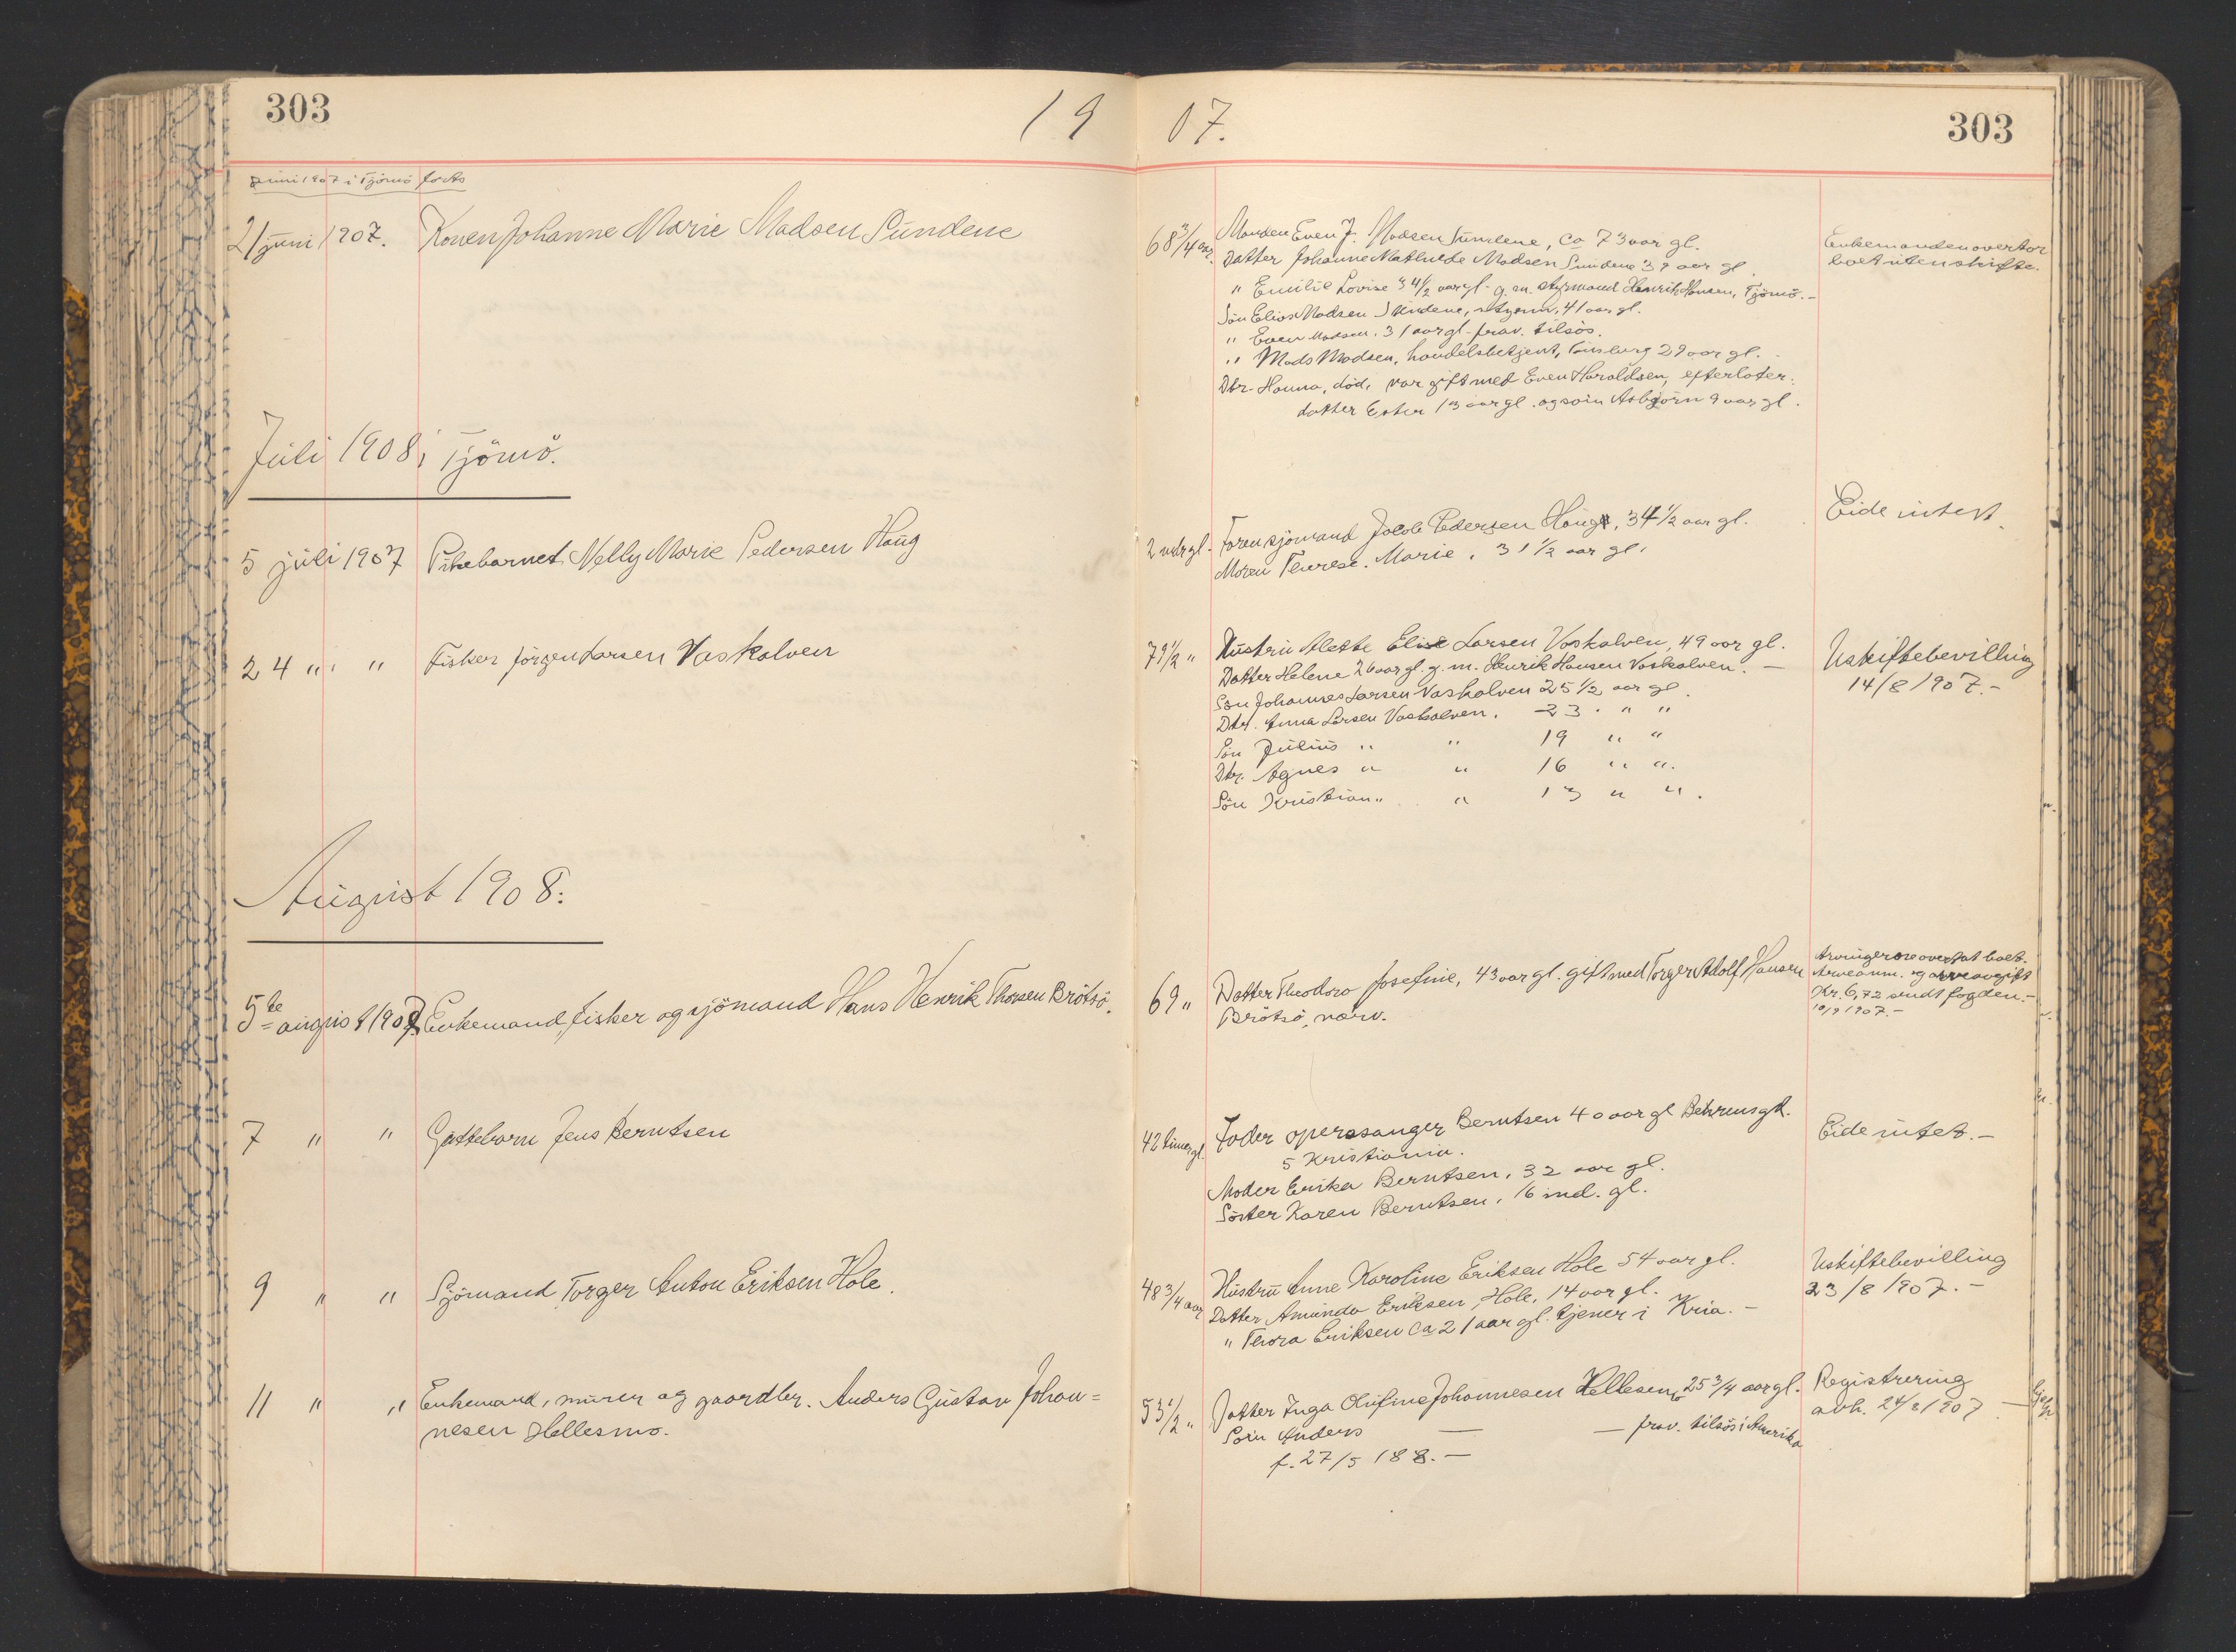 303
19 07.
303
Juni 1907 i Tjømø forts
21 juni 1907. Konen Johanne Marie Madsen Sundene
68 3/4 aar. Manden Even J. Madsen Sundene, ca 73 aar gl.
Datter Johanne Mathilde Madsen Sundene 39 aar gl.
" Emilie Lovise 34 1/2 aar gl. g. m. styrmand Henrik Hansen, Tjømø.-
Søn Elias Madsen Sundene, styrm, 41 aar gl.
" Even Madsen. 31 aar gl. frav. tilsøs.
" Mads Madsen, handelsbetjent, Tønsberg 29 aar gl.
Dtr. Hanna, død, var gift med Even Haraldsen, efterlater:
datter Ester 13 aar gl. og søn Asbjørn 9 aar gl.
Enkemanden overtar
boet uten skifte.
Juli 1908 i Tjømø.
5 juli 1907 Pikebarnet Nelly Marie Pedersen Haug
2 mdr gl. Faren sjømand Jacob Pedersen Haug, 34 1/2 aar gl.
Moren Therese Marie, 31 1/2 aar gl.
Eide intet.
24 " " Fisker Jørgen Larsen Vaskalven
79 1/2 " Hustru Alette Elise Larsen Vaskalven, 49 aar gl.
Datter Helene 26 aar gl. g. m. Henrik Hansen Vaskalven. -
Søn Johannes Larsen Vaskalven 25 1/2 aar gl.
Dtr. Anna Larsen Vaskalven. 23 " "
Søn Julius " " 19 " "
Dtr. Agnes " " 16 " ".
Søn Kristian " " 13 " ".
Uskiftebevilling
14/8 1907.-
August 1908:
5te august 1907. Enkemand, fisker og sjømand Hans Henrik Thorsen Brøtsø.
69 " Datter Theodora Josefine, 43 aar gl. gift med Torger Adolf Hansen
Brøtsø, nærv.
Arvingerne overtat boet.
Arveanm. og arveavgift
Kr. 6,72 sendt fogden.-
10/9 1907.-
7 " " Guttebarn Jens Berntsen
42 timer gl. Fader operasanger Berntsen 40 aar gl Behrensgt.
5 Kristiania.
Moder Erika Berntsen, 32 aar gl.
Søster Karen Berntsen, 16 md. gl.
Eide intet.-
9 " " Sjømand Torger Anton Eriksen Hole.
48 3/4 aar Hustru Anne Karoline Eriksen Hole 54 aar gl.
Datter Amanda Eriksen Hole, 14 aar gl.
" Thora Eriksen ca 21 aar gl. tjener i Kria.-
Uskiftebevilling
23/8 1907.-
11 " " Enkemand, murer og gaardbr. Anders Gustav Johan=
nesen Hellesmo.
53 1/2 " Datter Inga Olufine Johannesen Hellesmo, 25 3/4 aar gl.
Søn Anders — — frav. tilsøs i Amerika
f. 27/5 188.-
Registrering
avh. 24/8 1907. -